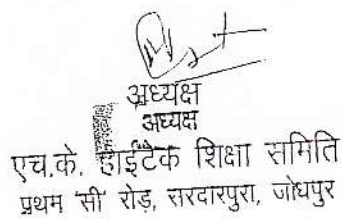 अध्यक्ष
अध्यक्ष
एच.के. हाईटेक शिक्षा समिति
प्रथम 'सी' रोड़, सरदारपुरा, जोधपुर